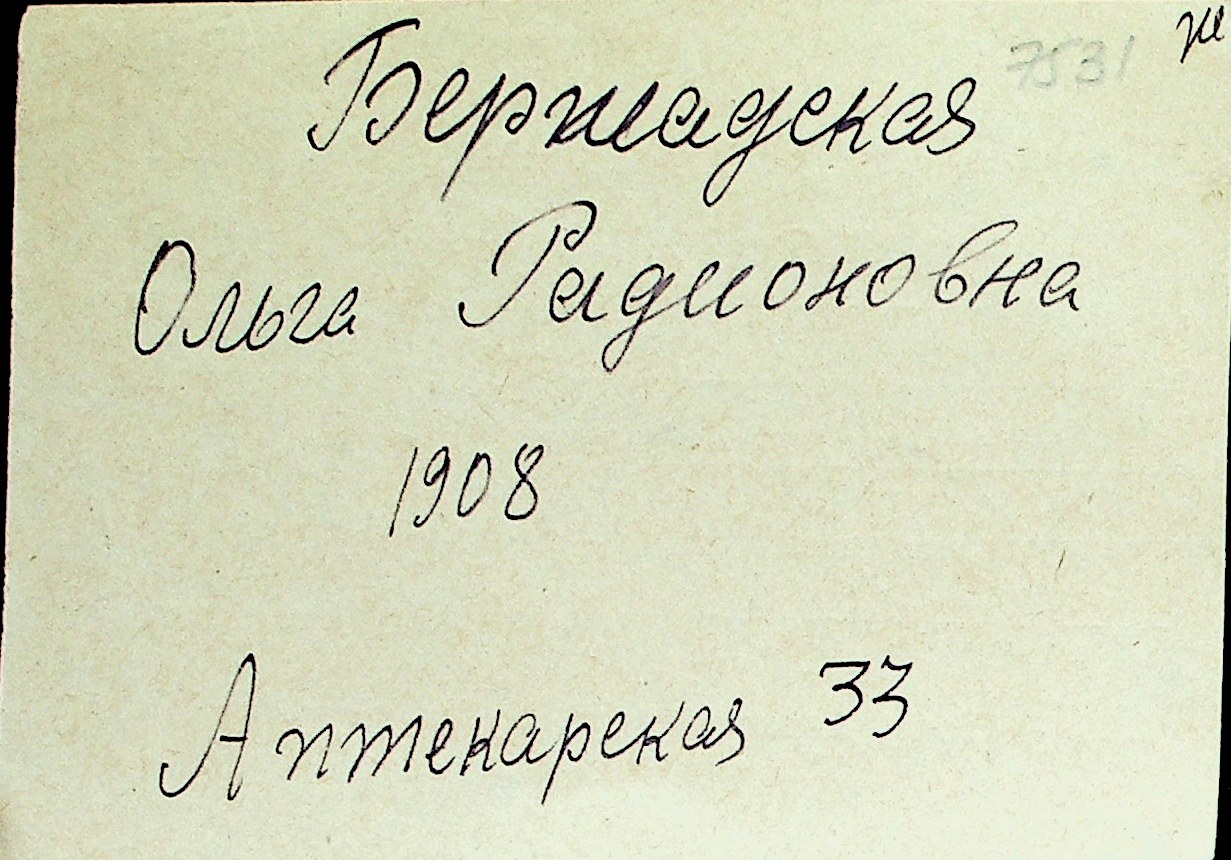 7531
Бершадская
Ольга Радионовна
1908
Аптекарская 33